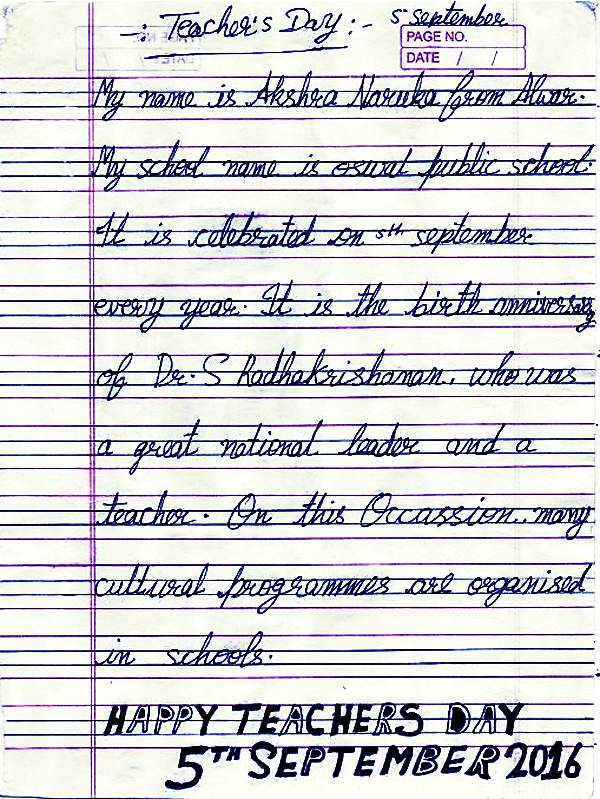 -: Teacher's Day :- 5 september
PAGE NO.
DATE / /
My name is Akshra Naruka from Alwar.
My school name is oswal public school.
It is celebrated on 5th september
every year. It is the birth anniversary
of Dr. S Radhakrishanan, who was
a great national leader and a
teacher. On this Occassion, many
cultural programmes are organised
in schools.
HAPPY TEACHERS DAY
5TH SEPTEMBER 2016